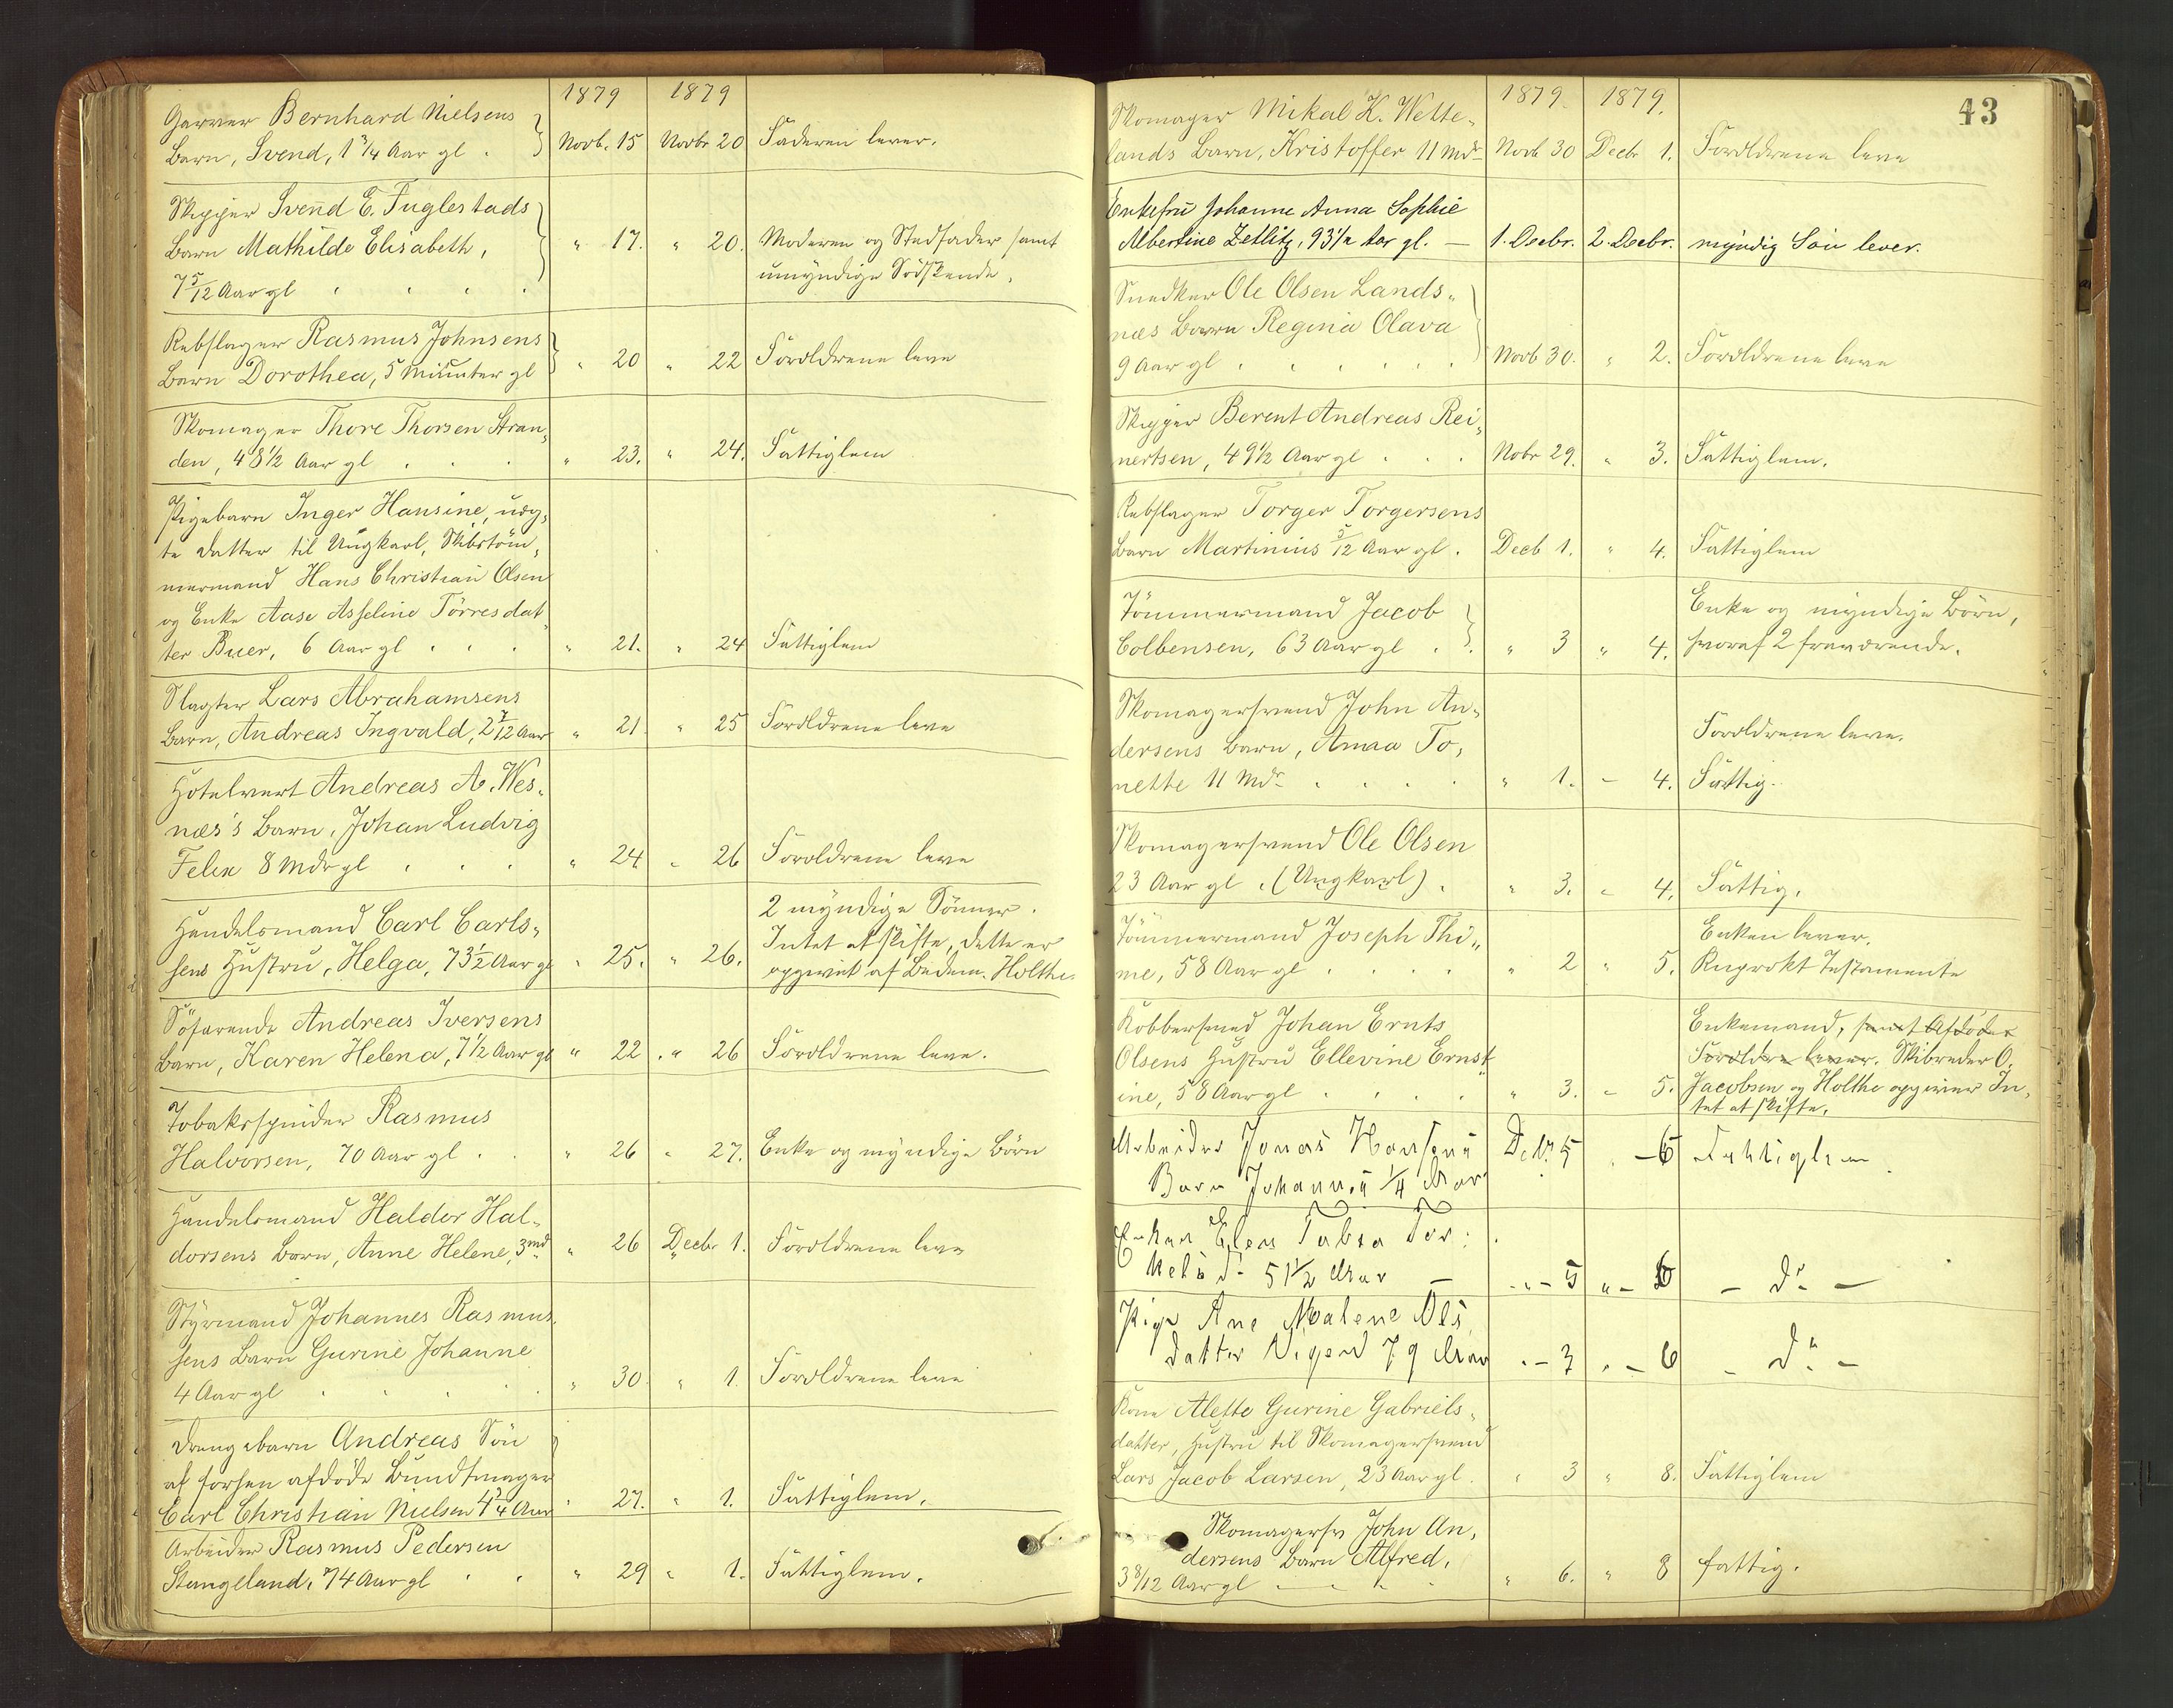 1879 1879
Garver Bernhard Nielsens
Barn, Svend, 1 3/4 Aar gl. Novb. 15 Novbr 20 Faderen lever.
Skipper Svend E. Fuglestads
Barn Mathilde Elisabeth, " 17. " 20. Moderen og Stedfader samt
7 5/12 Aar gl umyndige Södskende.
Rebslager Rasmus Johnsens
Barn Dorothea, 5 Minuter gl " 20 " 22 Forældrene leve
Skomager Thore Thorsen Stran-
den, 48 1/2 Aar gl " 23. " 24. Fattiglem
Pigebarn Inger Hansine, uæg-
te Datter til Ungkarl, Skibstöm-
mermand Hans Christian Olsen
og Enke Aase Asseline Törresdat-
ter Buer, 6 Aar gl " 21. " 24 Fattiglem
Slagter Lars Abrahamsens
Barn, Andreas Ingvald, 2 7/12 Aar " 21 " 25 Forældrene leve
Hotelvert Andreas A. Wes-
næs's Barn, Johan Ludvig
Felix 8 Mdr gl " 24 " 26 Forældrene leve
2 myndige Sönner.
Handelsmand Carl Carls- Intet at skifte, dette er
sens Hustru, Helga, 73 1/2 Aar gl " 25. " 26. opgivet af Bedem. Holthe.
Söfarende Andreas Iversens
Barn, Karen Helena, 7 1/2 Aar gl " 22. " 26 Forældrene leve.
Tobakspinder Rasmus
Halvorsen, 70 Aar gl. " 26 " 27. Enke og myndige Börn
Handelsmand Haldor Hal-
dorsens Barn, Anne Helene, 3 md " 26 Decbr 1. Forældrene leve
Styrmand Johannes Rasmus-
sens Barn Gurine Johanne
4 Aar gl " 30. " 1. Forældrene leve
Drengebarn Andreas Sön
af forhen afdöde Bundtmager
Carl Christian Nielsen 4 3/4 Aar " 27. " 1. Fattiglem.
Arbeider Rasmus Pedersen
Stangeland, 74 Aar gl " 29 " 1. Fattiglem.
43
1879. 1879.
Skomager Mikal K. Wette-
lands Barn, Kristoffer 11 Mdr Novb 30 Decbr 1. Forældrene leve
Enkefru Johanne Anna Sophie
Albertine Zetlitz, 93 1/2 Aar gl. — 1. Decbr. 2. Decbr. myndig Sön lever.
Snedker Ole Olsen Lands-
næs Barn Regina Olava
9 Aar gl Novb 30. " 2. Forældrene leve
Skipper Berent Andreas Rei-
nertsen, 49 1/2 Aar gl Nobr 29. " 3. Fattiglem.
Rebslager Torger Torgersens
Barn Martinius 5/12 Aar gl. Decb 1. " 4. Fattiglem
Tömmermand Jacob Enke og myndige Börn,
Colbensen, 63 Aar gl " 3 " 4. hvoraf 2 fraværende.
Skomagersvend John An-
dersens Barn, Anna To- Forældrene leve.
nette 11 Mdr " 1. - 4. Fattig.
Skomagersvend Ole Olsen
23 Aar gl. (Ungkarl). " 3. - 4. Fattig.
Tömmermand Joseph Thi- Enken lever.
me, 58 Aar gl " 2 " 5. Testamente
Kobbersmed Johan Ernts Enkemand, samt Afdödes
Olsens Hustru Ellevine Ernst- Forældre lever. Skibreder O.
ine, 58 Aar gl " 3. - 5. Jacobsen og Holthe opgiver In-
tet at skifte.
Arbeider Jonas Hansens Dcbr 5 " - 6 Fattiglem
Barn Johannes 1/4 Aar
Enken Elen Tabea Tor-
kelsd. 51 1/2 Aar — " - 5 " - 6 - do -
Pige Ane Malene Ols
datter Vigend 79 Aar " - 3 " - 6 - do -
Kone Alette Gurine Gabriels-
datter, Hustru til Skomagersvend
Lars Jacob Larsen, 23 Aar gl. " 3 " 8. Fattiglem
Skomagersv John An-
dersens Barn Alfred,
3 8/12 Aar gl " 6. " 8 fattig.